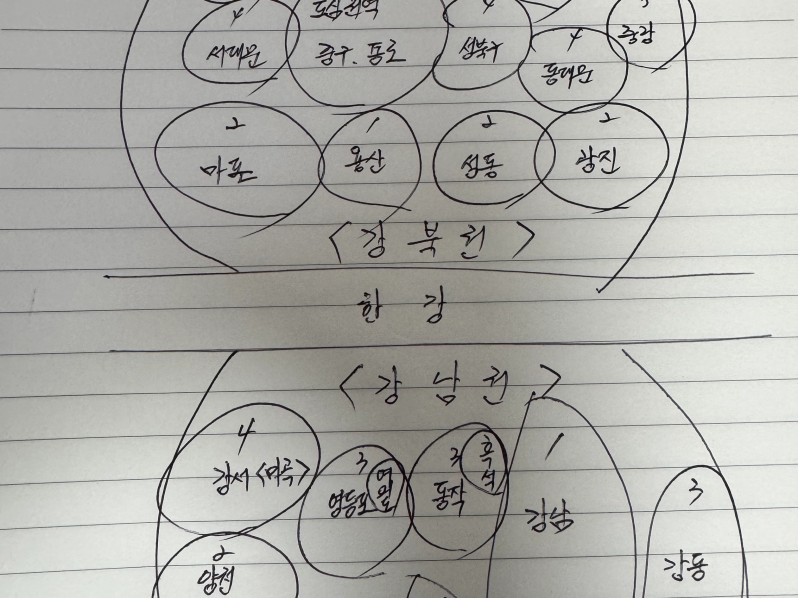 4
도심권역
4
3
서대문
중구. 종로
성북구
4
중랑
동대문
2
1
2
2
마포
용산
성동
광진
<강북권>
한강
<강남권>
4
3
3
흑석
1
3
강서<마곡>
영등포
동작
강남
강동
2
양천